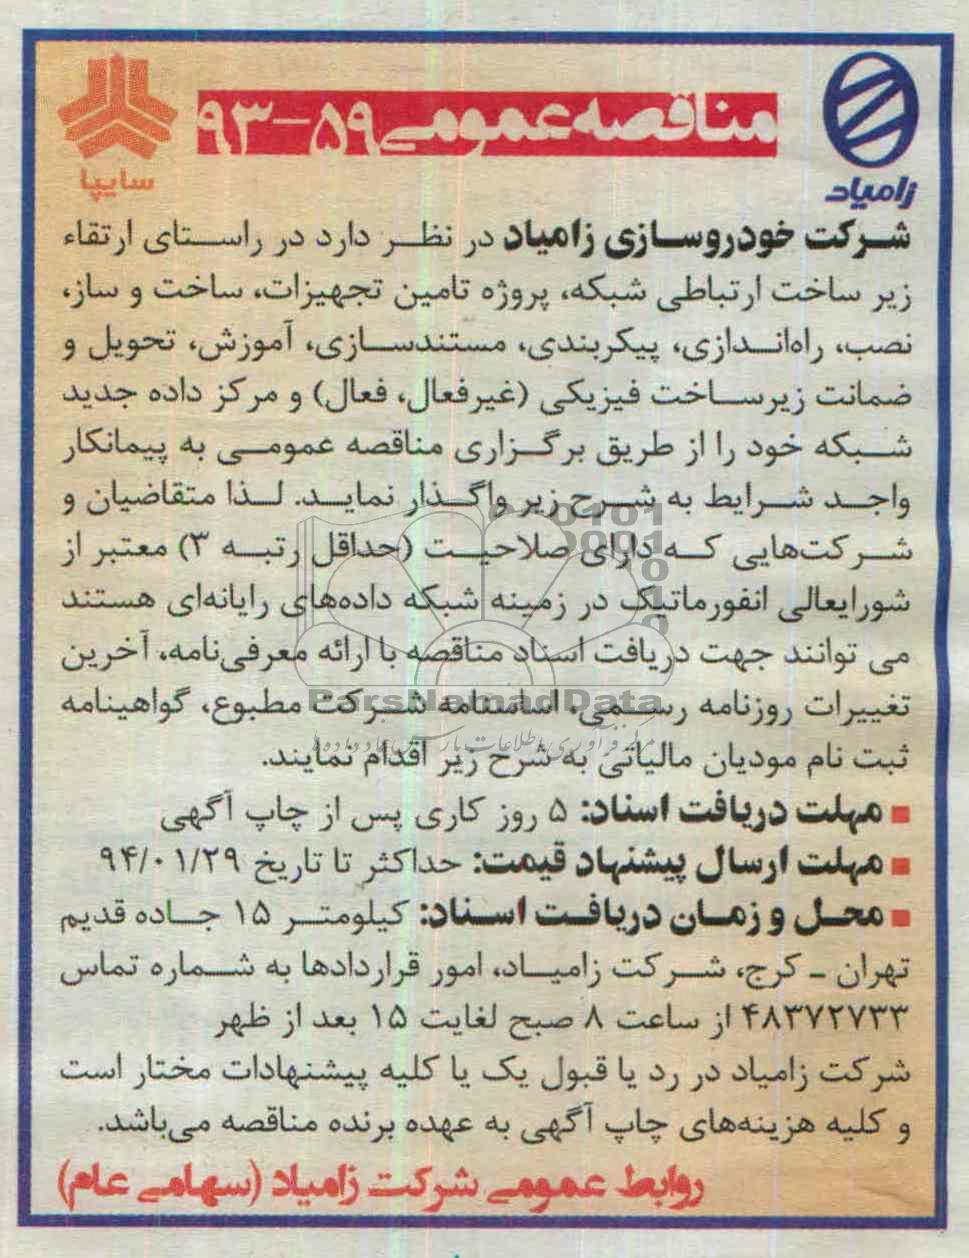 سایپا
زامیاد
مناقصه عمومی ۵۹-۹۳
شرکت خودروسازی زامیاد در نظر دارد در راستای ارتقاء
زیر ساخت ارتباطی شبکه، پروژه تامین تجهیزات، ساخت و ساز،
نصب، راه‌اندازی، پیکربندی، مستندسازی، آموزش، تحویل و
ضمانت زیرساخت فیزیکی (غیرفعال، فعال) و مرکز داده جدید
شبکه خود را از طریق برگزاری مناقصه عمومی به پیمانکار
واجد شرایط به شرح زیر واگذار نماید. لذا متقاضیان و
شرکت‌هایی که دارای صلاحیت (حداقل رتبه ۳) معتبر از
شورایعالی انفورماتیک در زمینه شبکه داده‌های رایانه‌ای هستند
می توانند جهت دریافت اسناد مناقصه با ارائه معرفی‌نامه، آخرین
تغییرات روزنامه رسمی، اساسنامه شرکت مطبوع، گواهینامه
ثبت نام مودیان مالیاتی به شرح زیر اقدام نمایند.
■ مهلت دریافت اسناد: ۵ روز کاری پس از چاپ آگهی
■ مهلت ارسال پیشنهاد قیمت: حداکثر تا تاریخ ۹۴/۰۱/۲۹
■ محل و زمان دریافت اسناد: کیلومتر ۱۵ جاده قدیم
تهران - کرج، شرکت زامیاد، امور قراردادها به شماره تماس
۴۸۳۷۲۷۳۳ از ساعت ۸ صبح لغایت ۱۵ بعد از ظهر
شرکت زامیاد در رد یا قبول یک یا کلیه پیشنهادات مختار است
و کلیه هزینه‌های چاپ آگهی به عهده برنده مناقصه می‌باشد.
روابط عمومی شرکت زامیاد (سهامی عام)
ParsNamadData